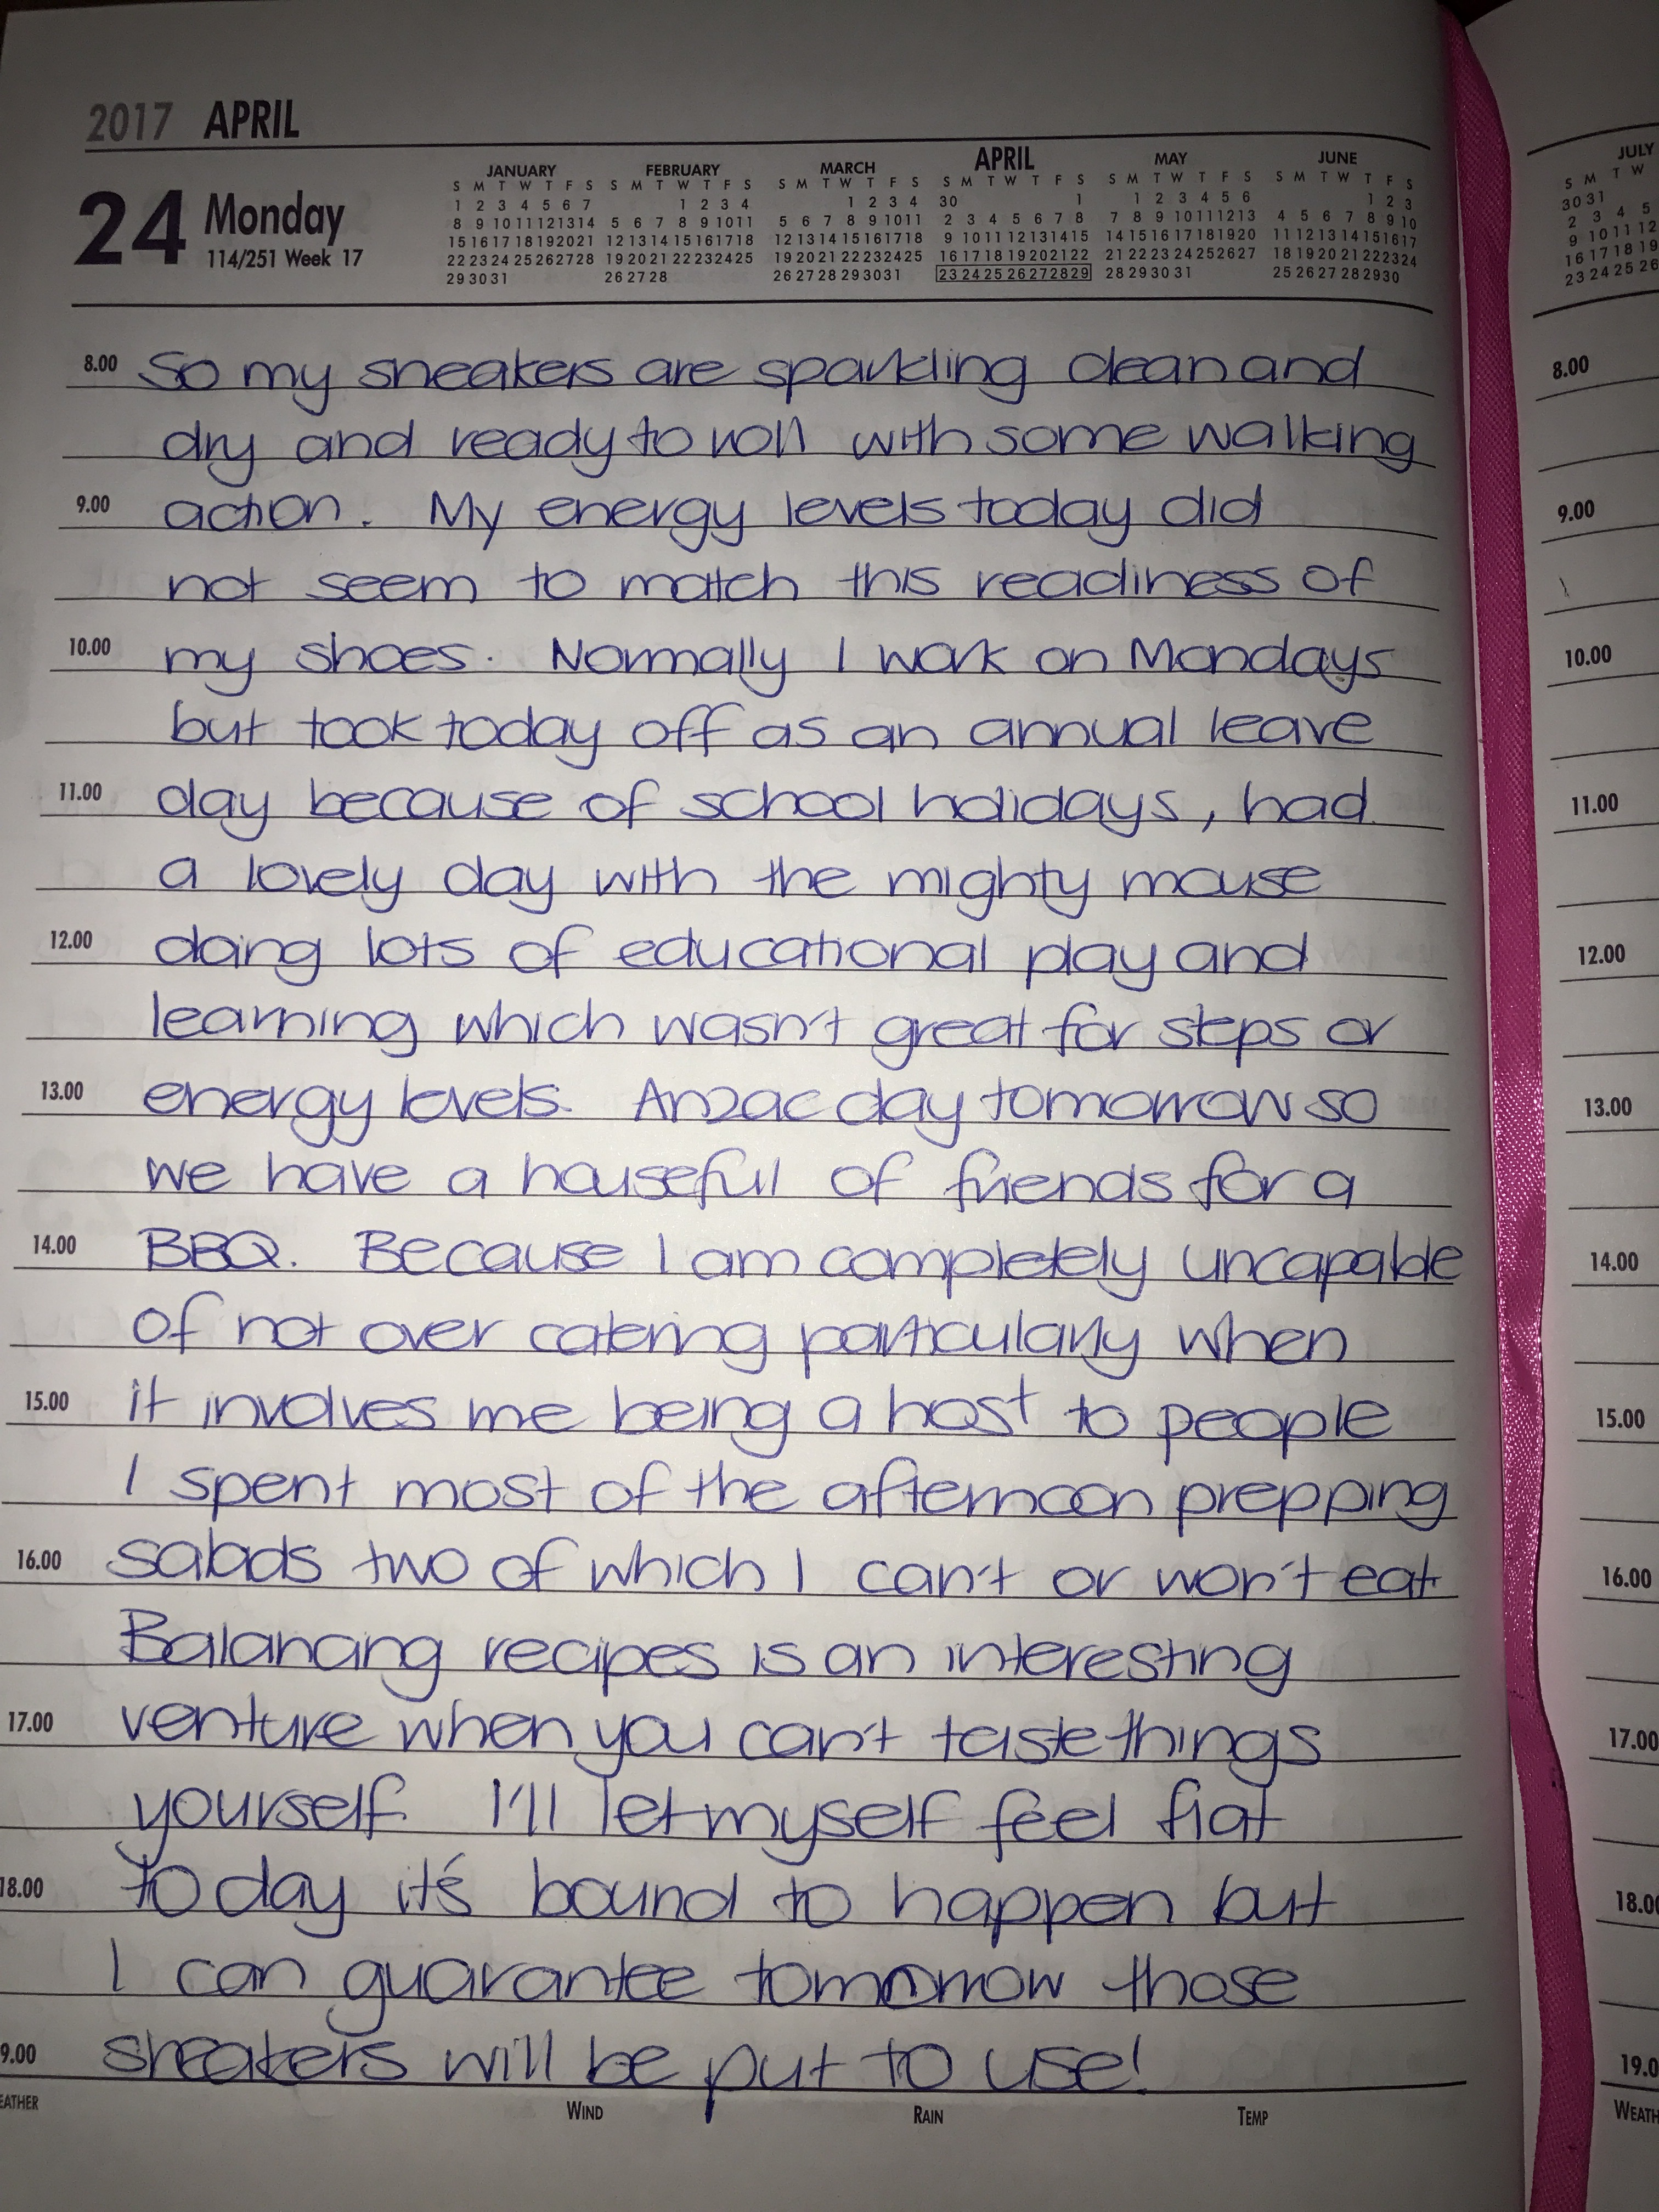 2017 APRIL
24 Monday
114/251 Week 17
JANUARY
S M T W T F S
1 2 3 4 5 6 7
8 9 10 11 12 13 14
15 16 17 18 19 20 21
22 23 24 25 26 27 28
29 30 31
FEBRUARY
S M T W T F S
1 2 3 4
5 6 7 8 9 10 11
12 13 14 15 16 17 18
19 20 21 22 23 24 25
26 27 28
MARCH
S M T W T F S
1 2 3 4
5 6 7 8 9 10 11
12 13 14 15 16 17 18
19 20 21 22 23 24 25
26 27 28 29 30 31
APRIL
S M T W T F S
30 1
2 3 4 5 6 7 8
9 10 11 12 13 14 15
16 17 18 19 20 21 22
23 24 25 26 27 28 29
MAY
S M T W T F S
1 2 3 4 5 6
7 8 9 10 11 12 13
14 15 16 17 18 19 20
21 22 23 24 25 26 27
28 29 30 31
JUNE
S M T W T F S
1 2 3
4 5 6 7 8 9 10
11 12 13 14 15 16 17
18 19 20 21 22 23 24
25 26 27 28 29 30
8.00 So my sneakers are sparkling clean and
dry and ready to roll with some walking
9.00 action. My energy levels today did
not seem to match this readiness of
10.00 my shoes. Normally I work on Mondays
but took today off as an annual leave
11.00 day because of school holidays, had
a lovely day with the mighty mouse
12.00 doing lots of educational play and
learning which wasn't great for steps or
13.00 energy levels. Anzac day tomorrow so
we have a houseful of friends for a
14.00 BBQ. Because I am completely uncapable
of not over catering particularly when
15.00 it involves me being a host to people
I spent most of the afternoon prepping
16.00 salads two of which I can't or won't eat
Balancing recipes is an interesting
17.00 venture when you can't taste things
yourself. I'll let myself feel flat
18.00 today it's bound to happen but
I can guarantee tomorrow those
9.00 sneakers will be put to use!
EATHER WIND RAIN TEMP
JULY
S M T W
30 31
2 3 4 5
9 10 11 12
16 17 18 19
23 24 25 26
8.00
9.00
10.00
11.00
12.00
13.00
14.00
15.00
16.00
17.00
18.0
19.0
WEATH